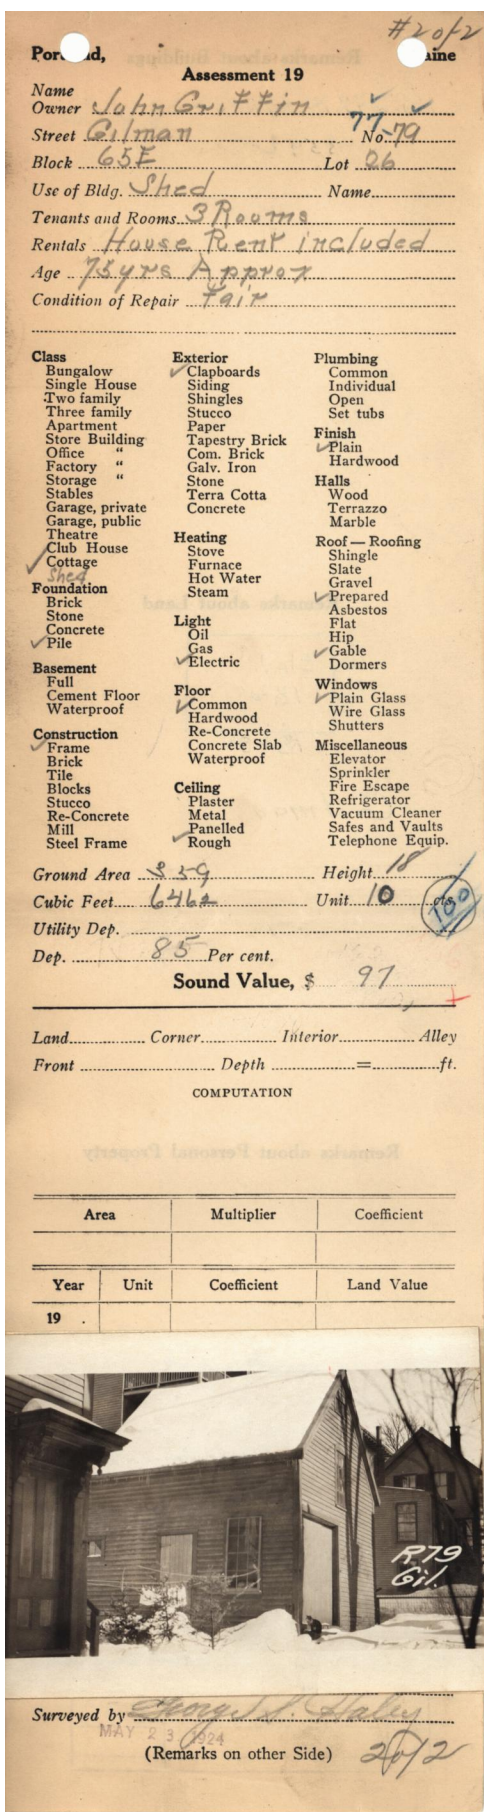 #2 of 2
Portland, Maine
Assessment 19
Name
Owner John Griffin
Street Gilman No. 77-79
Block 65E Lot 26
Use of Bldg. Shed Name
Tenants and Rooms 3 Rooms
Rentals House Rent included
Age 75 yrs Approx
Condition of Repair Fair
Class
Bungalow
Single House
Two family
Three family
Apartment
Store Building
Office "
Factory "
Storage "
Stables
Garage, private
Garage, public
Theatre
Club House
Cottage
Shed
Foundation
Brick
Stone
Concrete
Pile
Basement
Full
Cement Floor
Waterproof
Construction
Frame
Brick
Tile
Blocks
Stucco
Re-Concrete
Mill
Steel Frame
Exterior
Clapboards
Siding
Shingles
Stucco
Paper
Tapestry Brick
Com. Brick
Galv. Iron
Stone
Terra Cotta
Concrete
Heating
Stove
Furnace
Hot Water
Steam
Light
Oil
Gas
Electric
Floor
Common
Hardwood
Re-Concrete
Concrete Slab
Waterproof
Ceiling
Plaster
Metal
Panelled
Rough
Plumbing
Common
Individual
Open
Set tubs
Finish
Plain
Hardwood
Halls
Wood
Terrazzo
Marble
Roof — Roofing
Shingle
Slate
Gravel
Prepared
Asbestos
Flat
Hip
Gable
Dormers
Windows
Plain Glass
Wire Glass
Shutters
Miscellaneous
Elevator
Sprinkler
Fire Escape
Refrigerator
Vacuum Cleaner
Safes and Vaults
Telephone Equip.
Ground Area 359 Height 18
Cubic Feet 6462 Unit 10 cts.
100
Utility Dep.
Dep. 85 Per cent.
Sound Value, $ 97
Land Corner Interior Alley
Front Depth = ft.
COMPUTATION
Remarks about Personal Property
Area Multiplier Coefficient
Year Unit Coefficient Land Value
19 .
R79
Gil.
Surveyed by George S. Haley
MAY 23 1924
(Remarks on other Side) 2 of 2